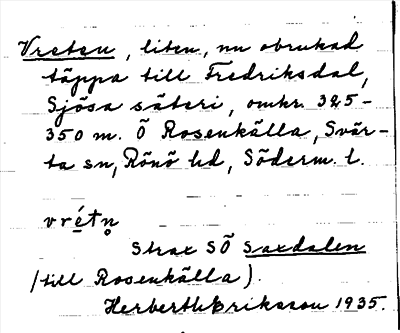 Vreten, liten, nu obrukad
täppa till Fredriksdal,
Sjösa säteri, omkr. 325-
350 m. Ö Rosenkälla, Svär-
ta sn, Rönö hd, Söderm. l.
vrétn̥
Strax SÖ Saxdalen
(till Rosenkälla).
Herberth Eriksson 1935.